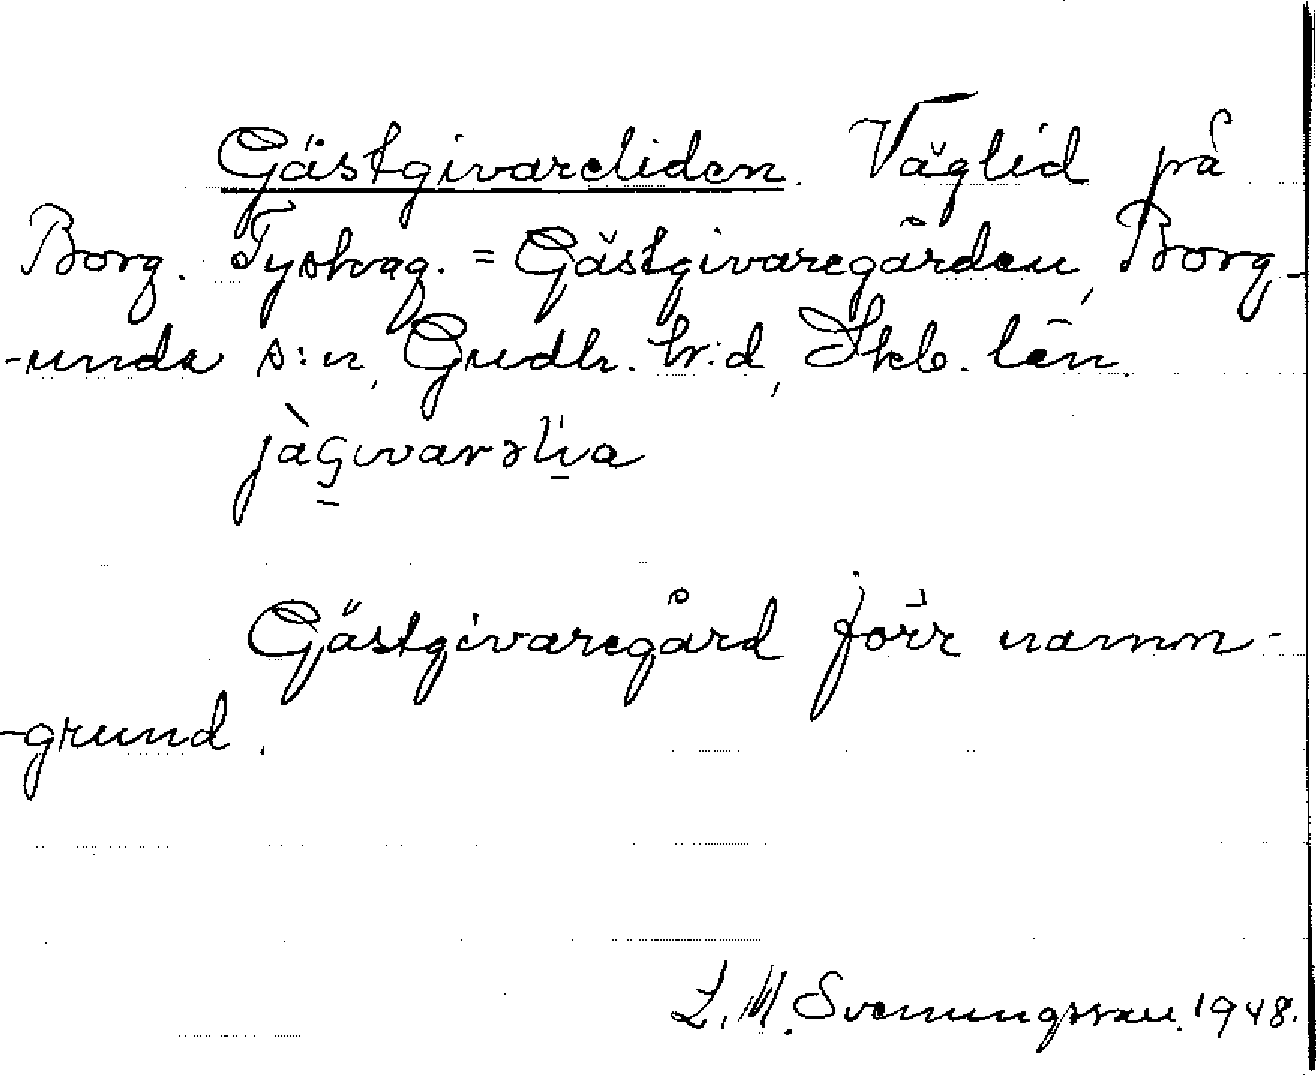 Gästgivareliden. Väglid på
Borg. Tyskag. = Gästgivaregården, Borg-
-unda s:n, Gudh. hr:d, Skb. län.
Gästgivaregård förr namn-
-grund.
L. M. Svenungsson. 1948.